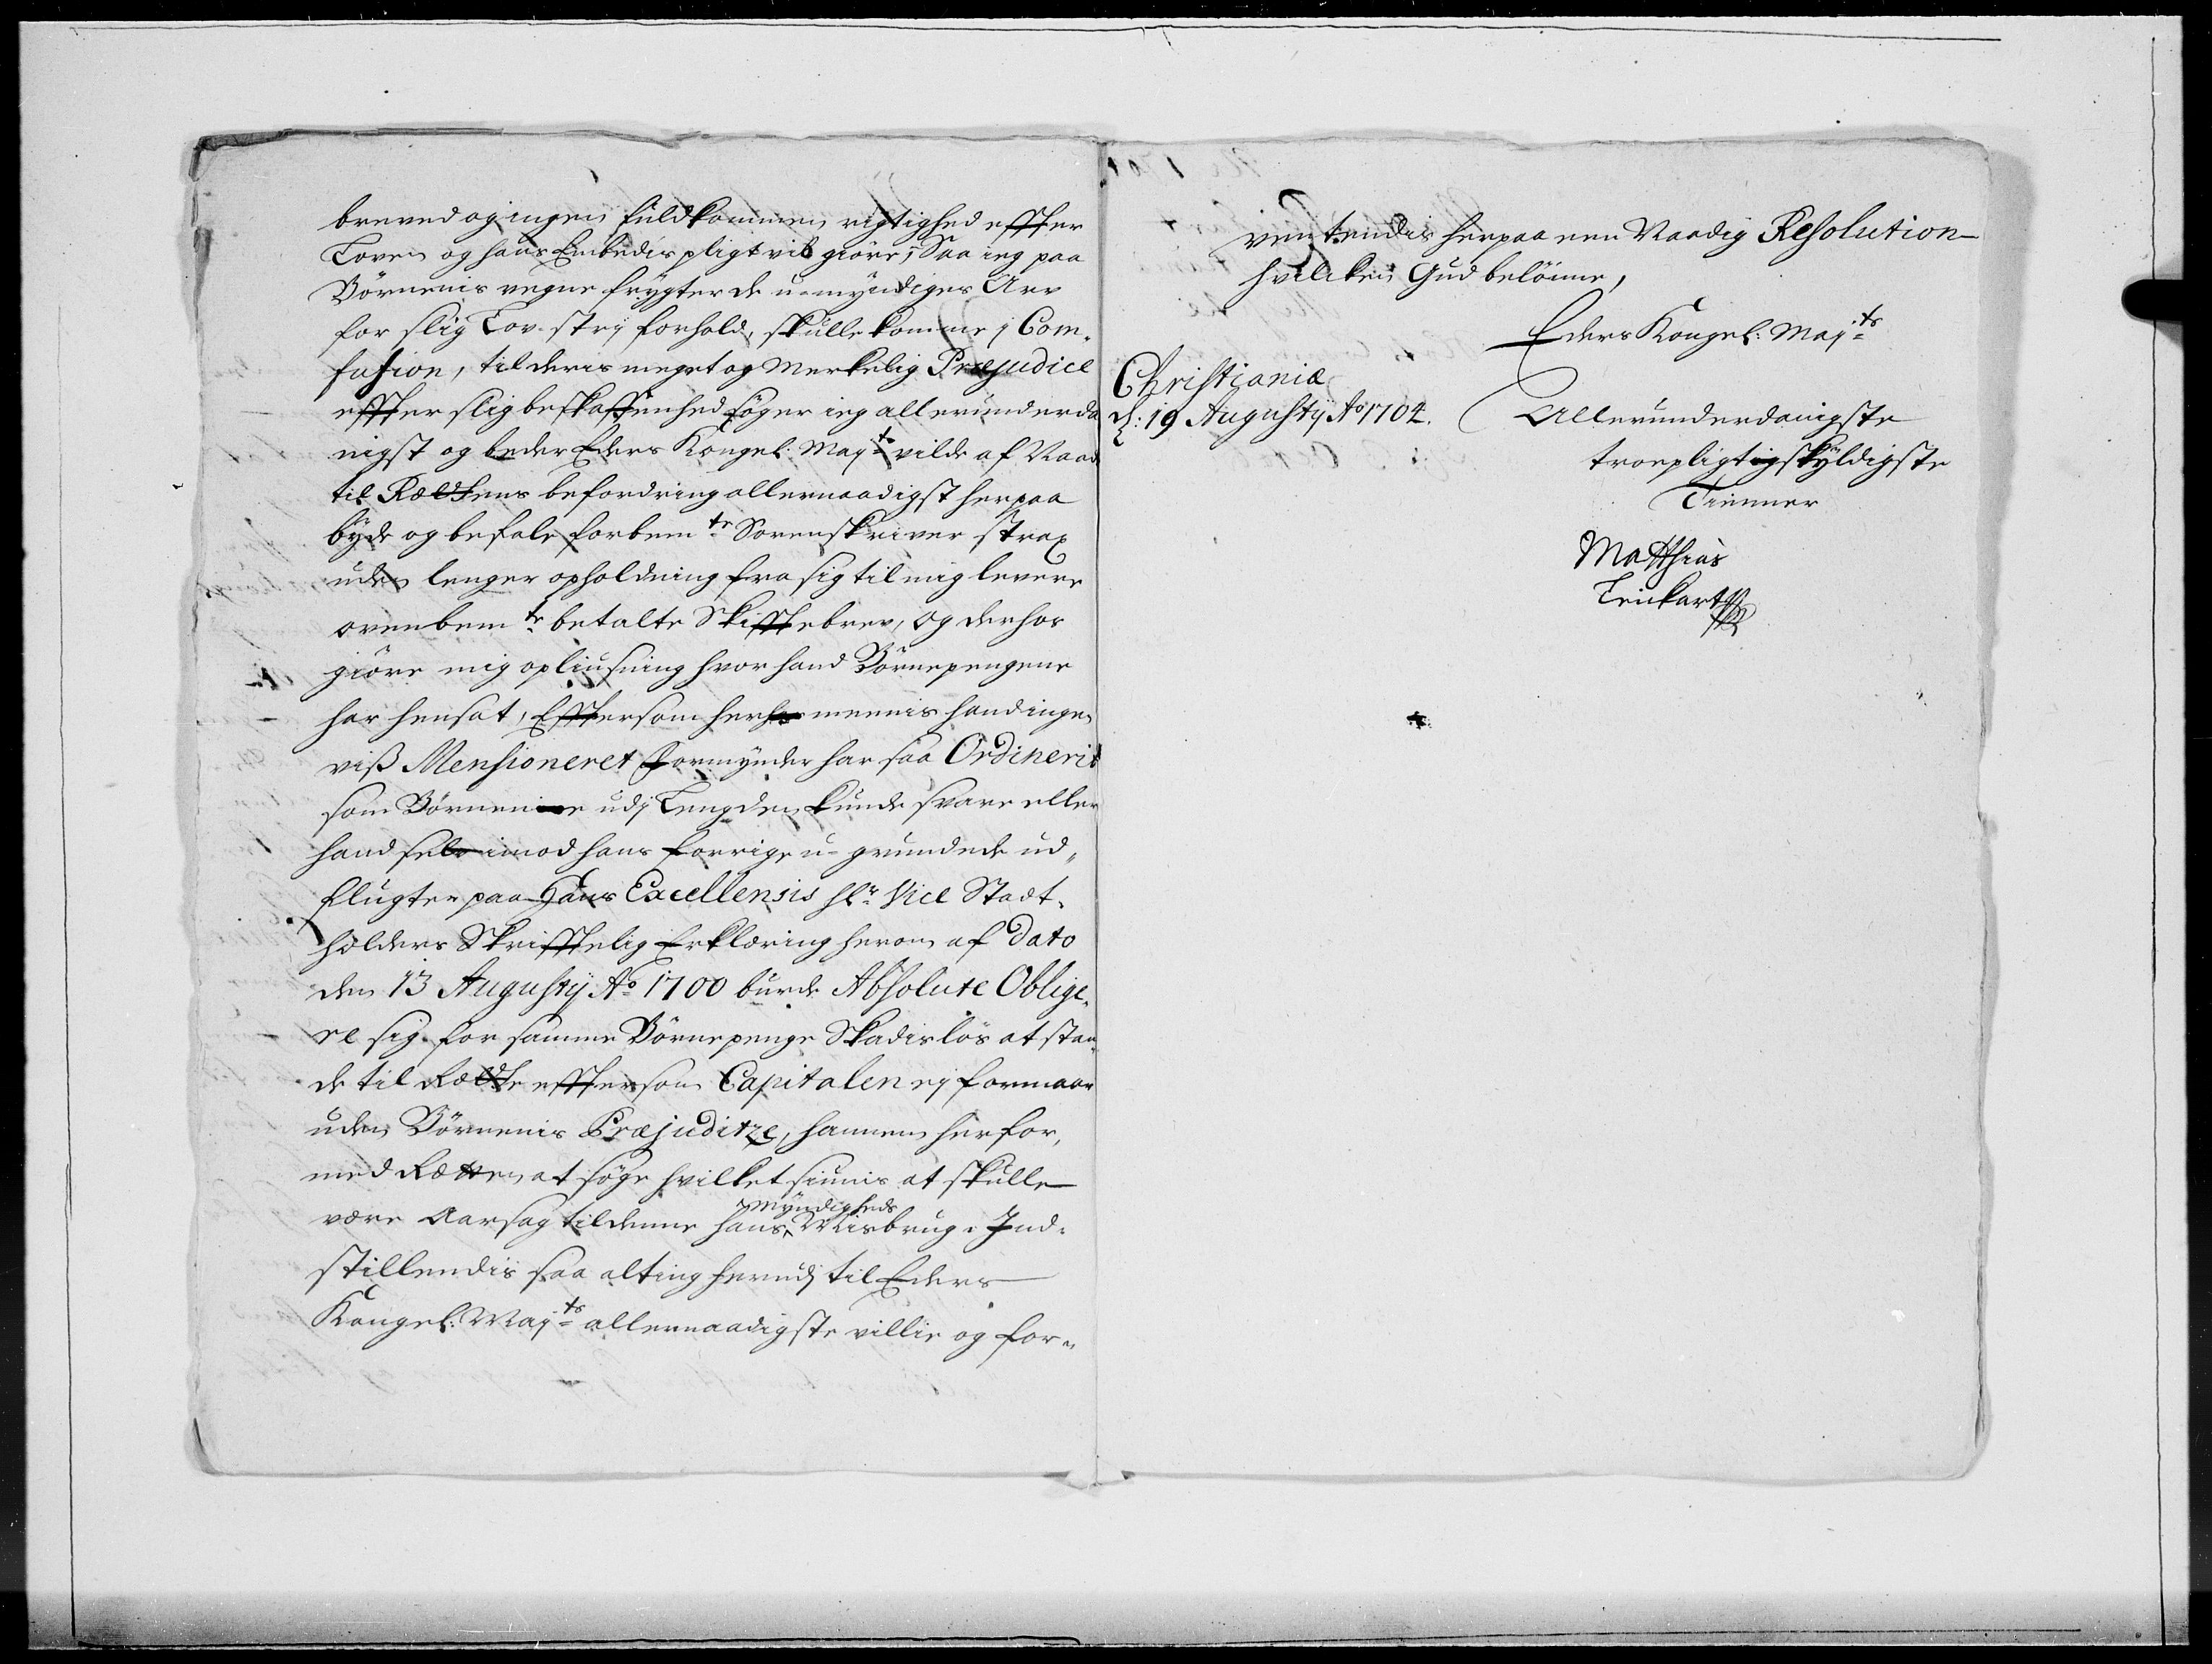 breved og ingen fuldkommen rigtighed effter
Loven og hans Embedis pligt vil giøre; Saa ieg paa
Børnenis vegne frygter de u-myndiges Arv
for slig Lov-strij forhold, skulle komme j Com-
fusion, til deris meget og Merkelig Præjudice
effter slig beskaffenhed søger ieg allerunderda
nigst og beder Eders Kongel: May:ts vilde af Naade
til Rættens befordring allernaadigst herpaa
byde og befale forbem:te Sorenskriver strax
uden lenger opholdning fra sig til mig levere
ovenbem:te betalte Skifftebrev, og derhos
giøre mig opliusning hvor hand Børnepengene
har hensat, Efftersom her mennis hand ingen
viß Mensioneret Formynder har saa Ordinerit
som Børnene udj Lengden kunde svare eller
hand selv imod hans forrige u-grundede ud-
flugter paa Hans Excellensis Hr: Vice Stadt-
holders Skrifftelig Erklæring herom af Dato
den 13 Augustij Ao 1700 burde Absolute Oblige-
re sig for samme Børnepenge Skadisløs at stan-
de til Rætte efftersom Capitalen ej formaar
uden Børnenis Præjuditze, hannem herfor,
med Rætten at søge hvilket siunis at skulle
være Aarsag til denne hans Myndigheds Misbrug. Ind-
stillendis saa alting herudj til Eders
Kongel: May:ts allernaadigste villie og for-
ventendis herpaa een Naadig Resolution
hvilcken Gud belønne,
Eders Kongel: May:ts
Christianiæ
d: 19 Augustij Ao 1704.
Allerunderdanigste
troepligtigskyldigste
Tienner
Matthias
Leickart